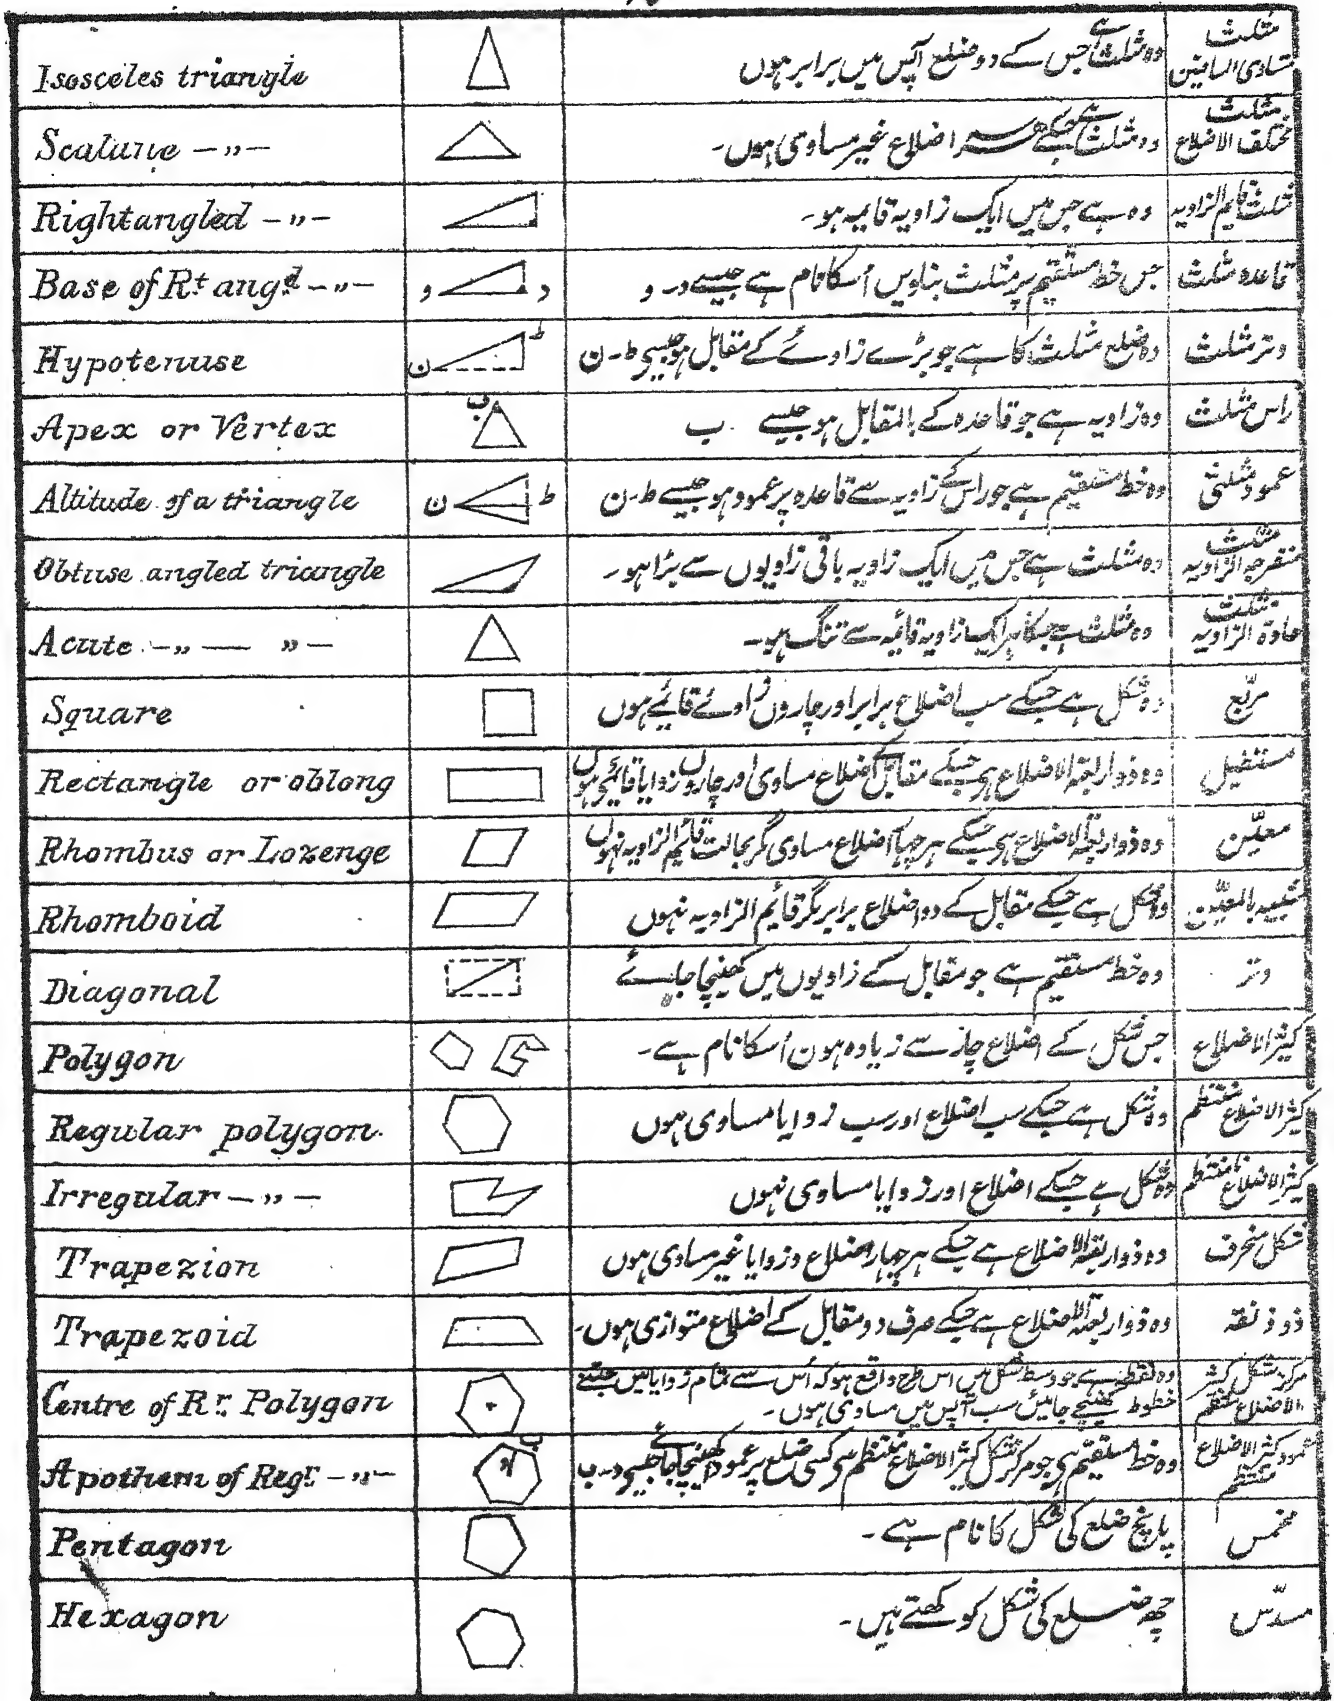 Isosceles triangle وہ مثلث ہے جس کے دو ضلع آپس میں برابر ہوں مثلث متساوی الساقین
Scalune -„- وہ مثلث ہے جسکے ہر سہ اضلاع غیر مساوی ہوں۔ مثلث مختلف الاضلاع
Rightangled -„- وہ ہے جس میں ایک زاویہ قایمہ ہو۔ مثلث قایم الزاویہ
Base of Rt angd -„- و د جس خط مستقیم پر مثلث بناویں اُسکا نام ہے جیسے د۔ و قاعدہ مثلث
Hypotenuse ن ط وہ ضلع مثلث کا ہے جو بڑے زاوئے کے مقابل ہو جیسے ط۔ن وتر مثلث
Apex or Vertex ب وہ زاویہ ہے جو قاعدہ کے بالمقابل ہو جیسے ب راس مثلث
Altitude of a triangle ن ط وہ خط مستقیم ہے جو راس کے زاویہ سے قاعدہ پر عمود ہو جیسے ط۔ن عمود مثلثی
Obtuse angled triangle وہ مثلث ہے جس میں ایک زاویہ باقی زاویوں سے بڑا ہو۔ مثلث منفرجہ الزاویہ
Acute -„- „- وہ مثلث ہے جسکا ہر ایک زاویہ قائمہ سے تنگ ہو۔ مثلث حادۃ الزاویہ
Square وہ شکل ہے جسکے سب اضلاع برابر اور چاروں زاوئے قایمے ہوں مربّع
Rectangle or oblong وہ ذواربعۃ الاضلاع ہی جسکے مقابل کے اضلاع مساوی اور چاروں زوایا قائمے ہوں مستطیل
Rhombus or Lozenge وہ ذواربعۃ الاضلاع ہی جسکے ہر چہار اضلاع مساوی مگر بحالت قائم الزاویہ نہوں معیّن
Rhomboid وہ شکل ہے جسکے مقابل کے دو اضلاع برابر مگر قایم الزاویہ نہوں شبیہ بالمعیّن
Diagonal وہ خط مستقیم ہے جو مقابل کے زاویوں میں کھینچا جائے وتر
Polygon جس شکل کے اضلاع چار سے زیادہ ہون اُسکا نام ہے۔ کثیرالاضلاع
Regular polygon. وہ شکل ہے جسکے سب اضلاع اور سب زوایا مساوی ہوں کثیرالاضلاع منتظم
Irregular -„- وہ شکل ہے جسکے اضلاع اور زوایا مساوی نہوں کثیرالاضلاع نامنتظم
Trapezion وہ ذواربعۃ الاضلاع ہے جسکے ہر چہار اضلاع و زوایا غیر مساوی ہوں شکل منحرف
Trapezoid وہ ذواربعۃ الاضلاع ہے جسکے صرف دو مقابل کے اضلاع متوازی ہوں۔ ذوذنقہ
Centre of Rr. Polygon وہ نقطہ ہے جو وسط شکل میں اس طرح واقع ہو کہ اُس سے تمام زوایا میں جتنے خطوط کھینچے جائیں سب آپس میں مساوی ہوں۔ مرکز شکل کثیر الاضلاع منتظم
Apothem of Regr. -„- و ب وہ خط مستقیم ہی جو مرکز شکل کثیرالاضلاع منتظم سی کسی ضلع پر عمود کھینچا جائے جیسے و۔ب عمود کثیرالاضلاع منتظم
Pentagon پانچ ضلع کی شکل کا نام ہے۔ مخمس
Hexagon چھ ضلع کی شکل کو کہتے ہیں۔ مسدّس